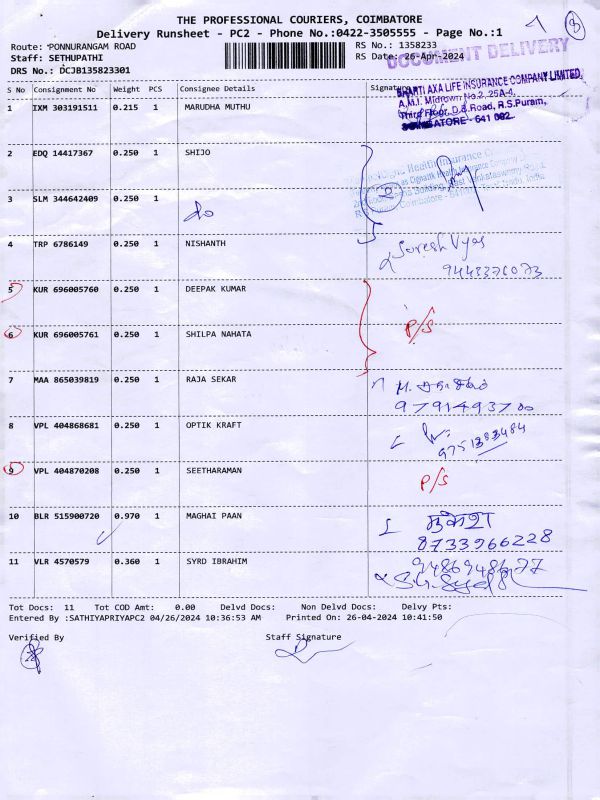 THE PROFESSIONAL COURIERS, COIMBATORE
Delivery Runsheet - PC2 - Phone No.:0422-3505555 - Page No.:1
Route: PONNURANGAM ROAD
RS No.: 1358233
Staff: SETHUPATHI
RS Date: 26-Apr-2024
DRS No.: DCJB135823301
DOCUMENT DELIVERY
S No Consignment No Weight PCS Consignee Details Signature
BHARTI AXA LIFE INSURANCE COMPANY LIMITED,
A.M.I. Midtown No.2, 25A-4,
Third Floor, D.B.Road, R.S.Puram,
COIMBATORE - 641 002.
1 IXM 303191511 0.215 1 MARUDHA MUTHU
2 EDQ 14417367 0.250 1 SHIJO
Health Insurance
3 SLM 344642409 0.250 1 do
4 TRP 6786149 0.250 1 NISHANTH Suresh Vyas
9443376073
5 KUR 696005760 0.250 1 DEEPAK KUMAR
P/S
6 KUR 696005761 0.250 1 SHILPA NAHATA
7 MAA 865039819 0.250 1 RAJA SEKAR
9791493700
8 VPL 404868681 0.250 1 OPTIK KRAFT
9751383484
9 VPL 404870208 0.250 1 SEETHARAMAN P/S
10 BLR 515900720 0.970 1 MAGHAI PAAN
8733966228
11 VLR 4570579 0.360 1 SYRD IBRAHIM
Tot Docs: 11 Tot COD Amt: 0.00 Delvd Docs: Non Delvd Docs: Delvy Pts:
Entered By :SATHIYAPRIYAPC2 04/26/2024 10:36:53 AM Printed On: 26-04-2024 10:41:50
Verified By Staff Signature